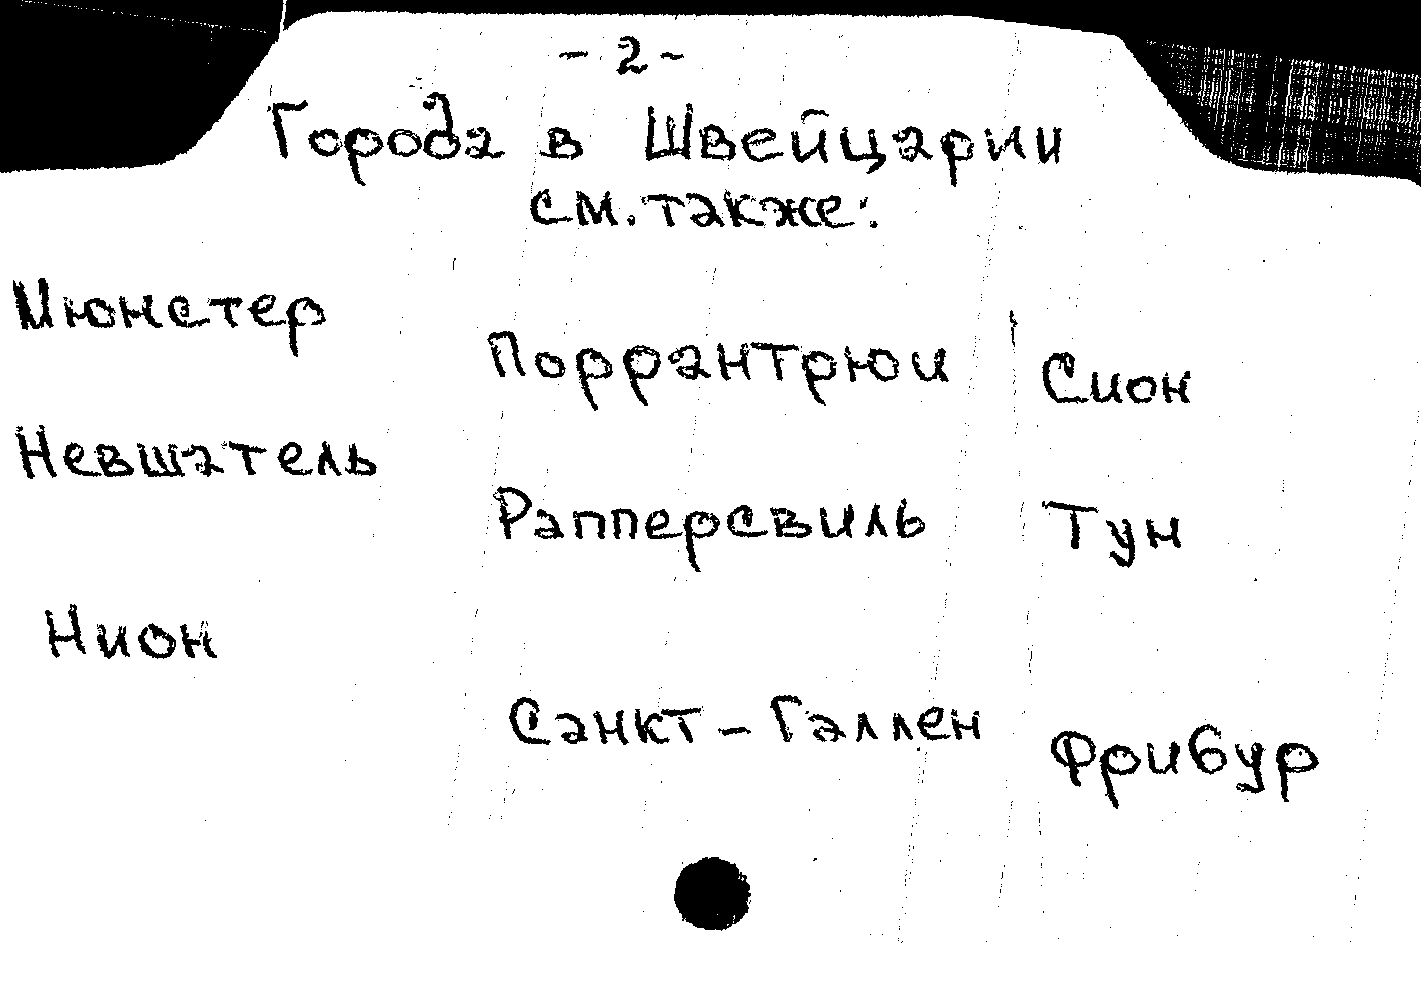 - 2 -
Города в Швейцарии
см. также:
Мюнстер
Невшатель
Нион
Поррантрюи
Рапперсвиль
Санкт-Галлен
Сион
Тун
Фрибур